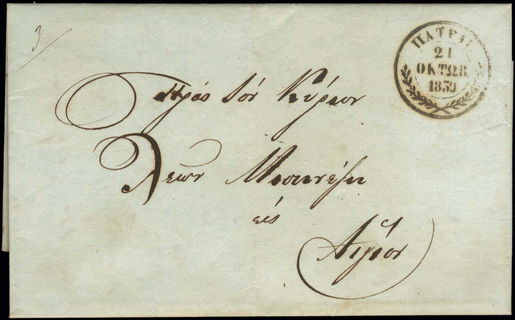 3
ΠΑΤΡΑΙ
21
ΟΚΤΩΒ
1859
Πρὸς τὸν Κύριον
Λέων
εἰς
Αἴγιον